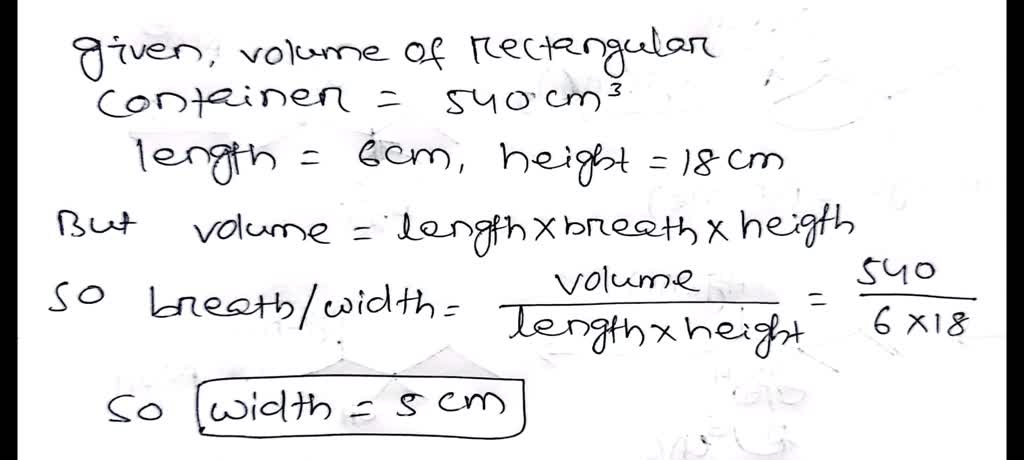 given, volume of rectangular
container = 540 cm³
length = 6cm, height = 18 cm
But volume = length x breath x heigth
so breath/width = volume / length x height = 540 / 6 x 18
so width = 5 cm